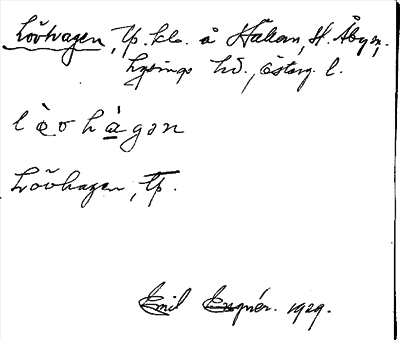 Lövhagen, Tp. kln. å Hällan, St. Åby sn,
Lysings hd., Österg. l.
lèo hàgən
Lövhagen, Tp.
Emil Engnér. 1929.